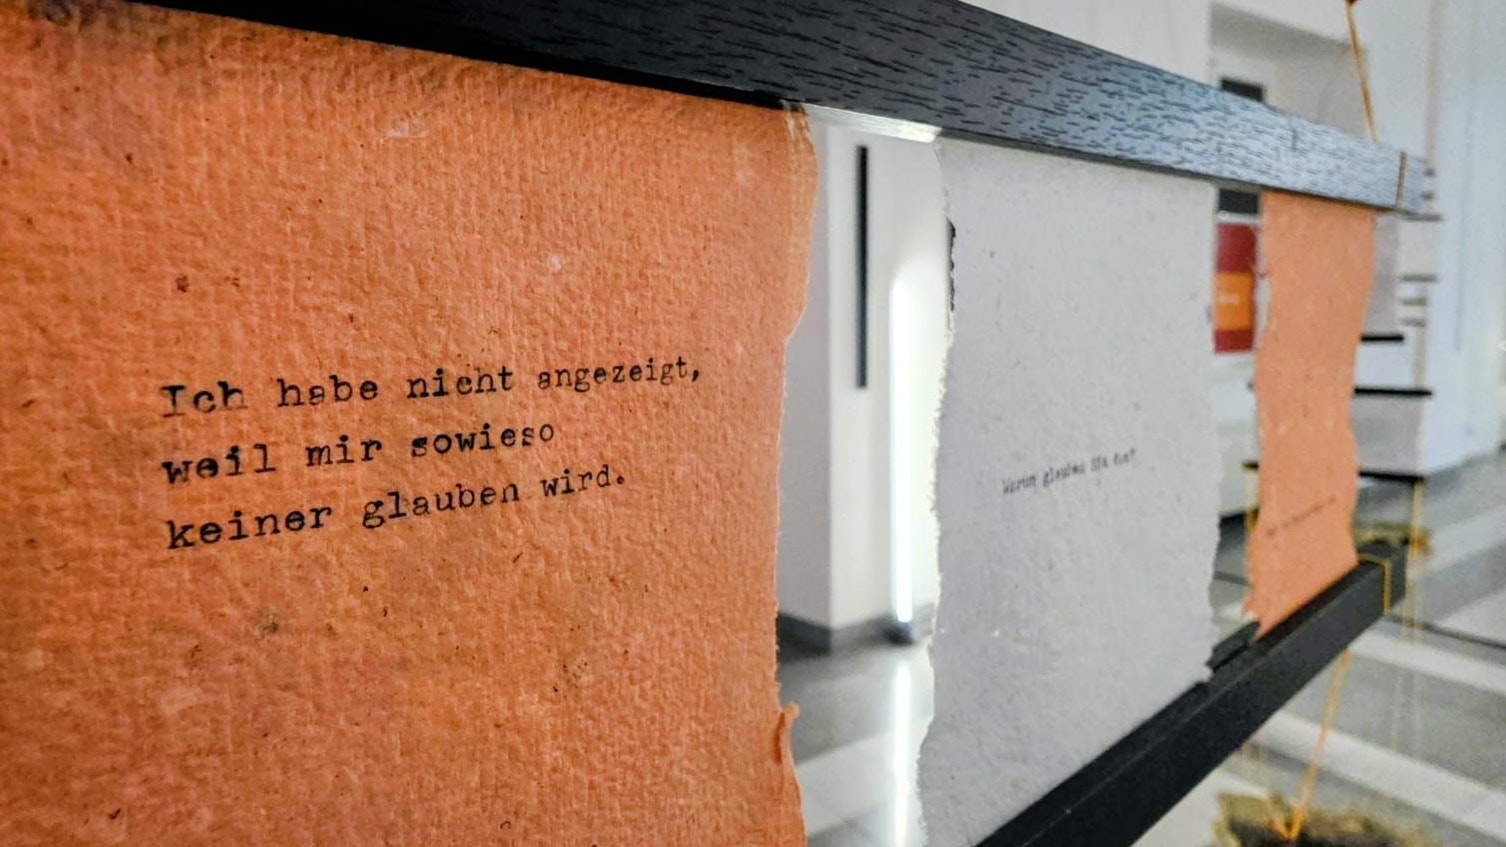 Ich habe nicht angezeigt,
weil mir sowieso
keiner glauben wird.
Warum glauben SIE dus?